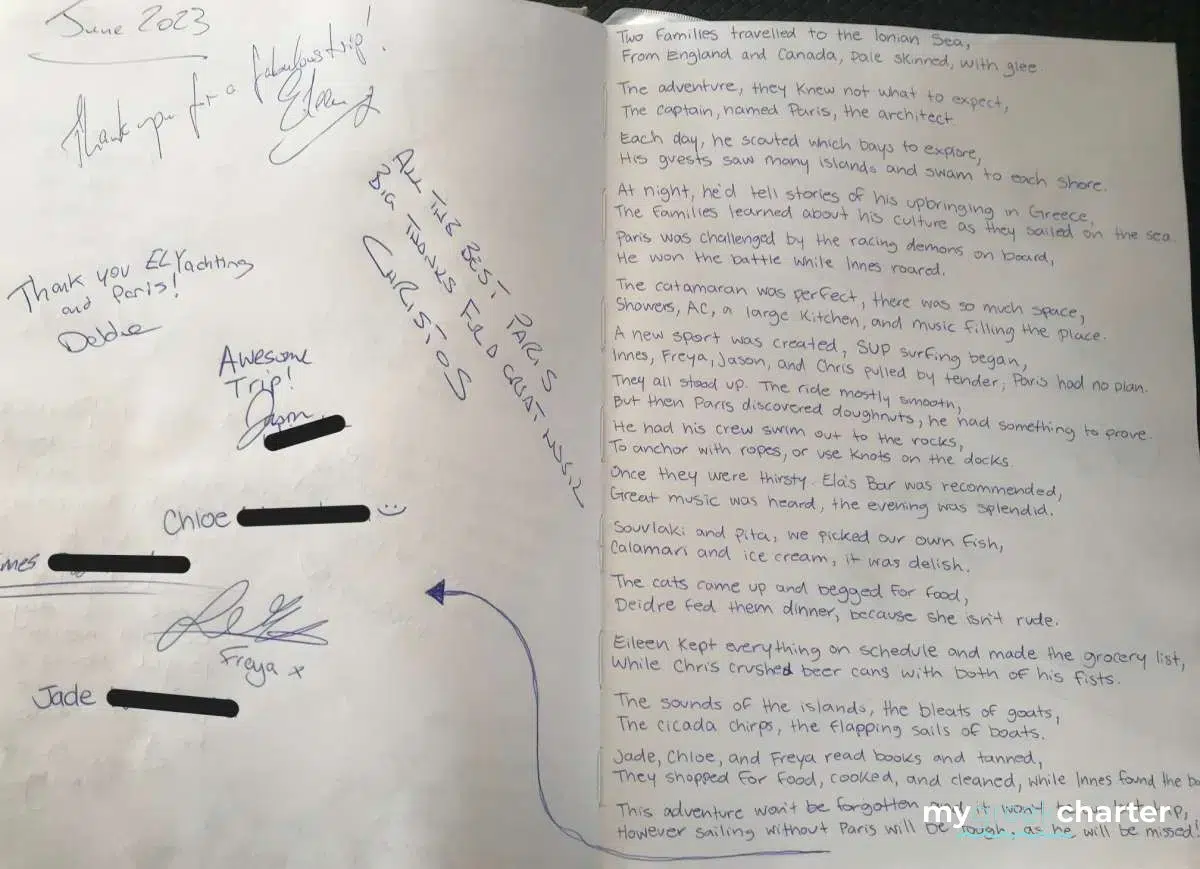 June 2023
Thank you for a fabulous trip!
Eileen
ALL THE BEST PARIS
BIG THANKS FOR D GREAT MUSIC
CHRISTOS
Thank you ELYachting
and Paris!
Debbie
Awesome
Trip!
Jason
Chloe
Freya x
Jade
Two families travelled to the Ionian Sea,
From England and Canada, pale skinned, with glee
The adventure, they knew not what to expect,
The captain, named Paris, the architect.
Each day, he scouted which bays to explore,
His guests saw many islands and swam to each shore.
At night, he'd tell stories of his upbringing in Greece,
The families learned about his culture as they sailed on the sea.
Paris was challenged by the racing demons on board,
He won the battle while Innes roared.
The catamaran was perfect, there was so much space,
Showers, AC, a large kitchen, and music filling the place.
A new sport was created, SUP surfing began,
Innes, Freya, Jason, and Chris pulled by tender, Paris had no plan.
They all stood up. The ride mostly smooth,
But then Paris discovered doughnuts, he had something to prove.
He had his crew swim out to the rocks,
To anchor with ropes, or use knots on the docks.
Once they were thirsty. Ela's Bar was recommended,
Great music was heard, the evening was splendid.
Souvlaki and Pita, we picked our own fish,
Calamari and ice cream, it was delish.
The cats came up and begged for food,
Deidre fed them dinner, because she isn't rude.
Eileen kept everything on schedule and made the grocery list,
While Chris crushed beer cans with both of his fists.
The sounds of the islands, the bleats of goats,
The cicada chirps, the flapping sails of boats.
Jade, Chloe, and Freya read books and tanned,
They shopped for food, cooked, and cleaned, while Innes found the
This adventure won't be forgotten and it won't
However sailing without Paris will be tough, as he will be missed!
my charter